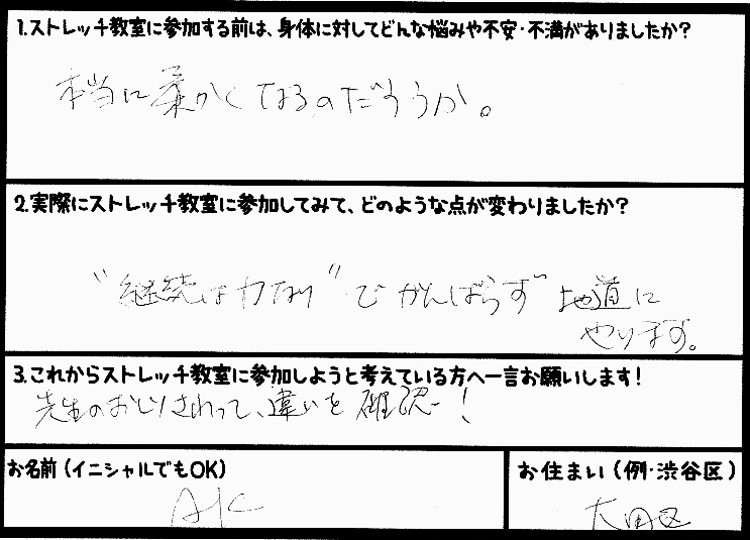 1.ストレッチ教室に参加する前は、身体に対してどんな悩みや不安・不満がありましたか?
本当に柔かくなるのだろうか。
2.実際にストレッチ教室に参加してみて、どのような点が変わりましたか?
"継続は力なり"で がんばらず 地道に
やります。
3.これからストレッチ教室に参加しようと考えている方へ一言お願いします!
先生のおしりさわって、違いを確認!
お名前(イニシャルでもOK)
AK
お住まい(例・渋谷区)
大田区